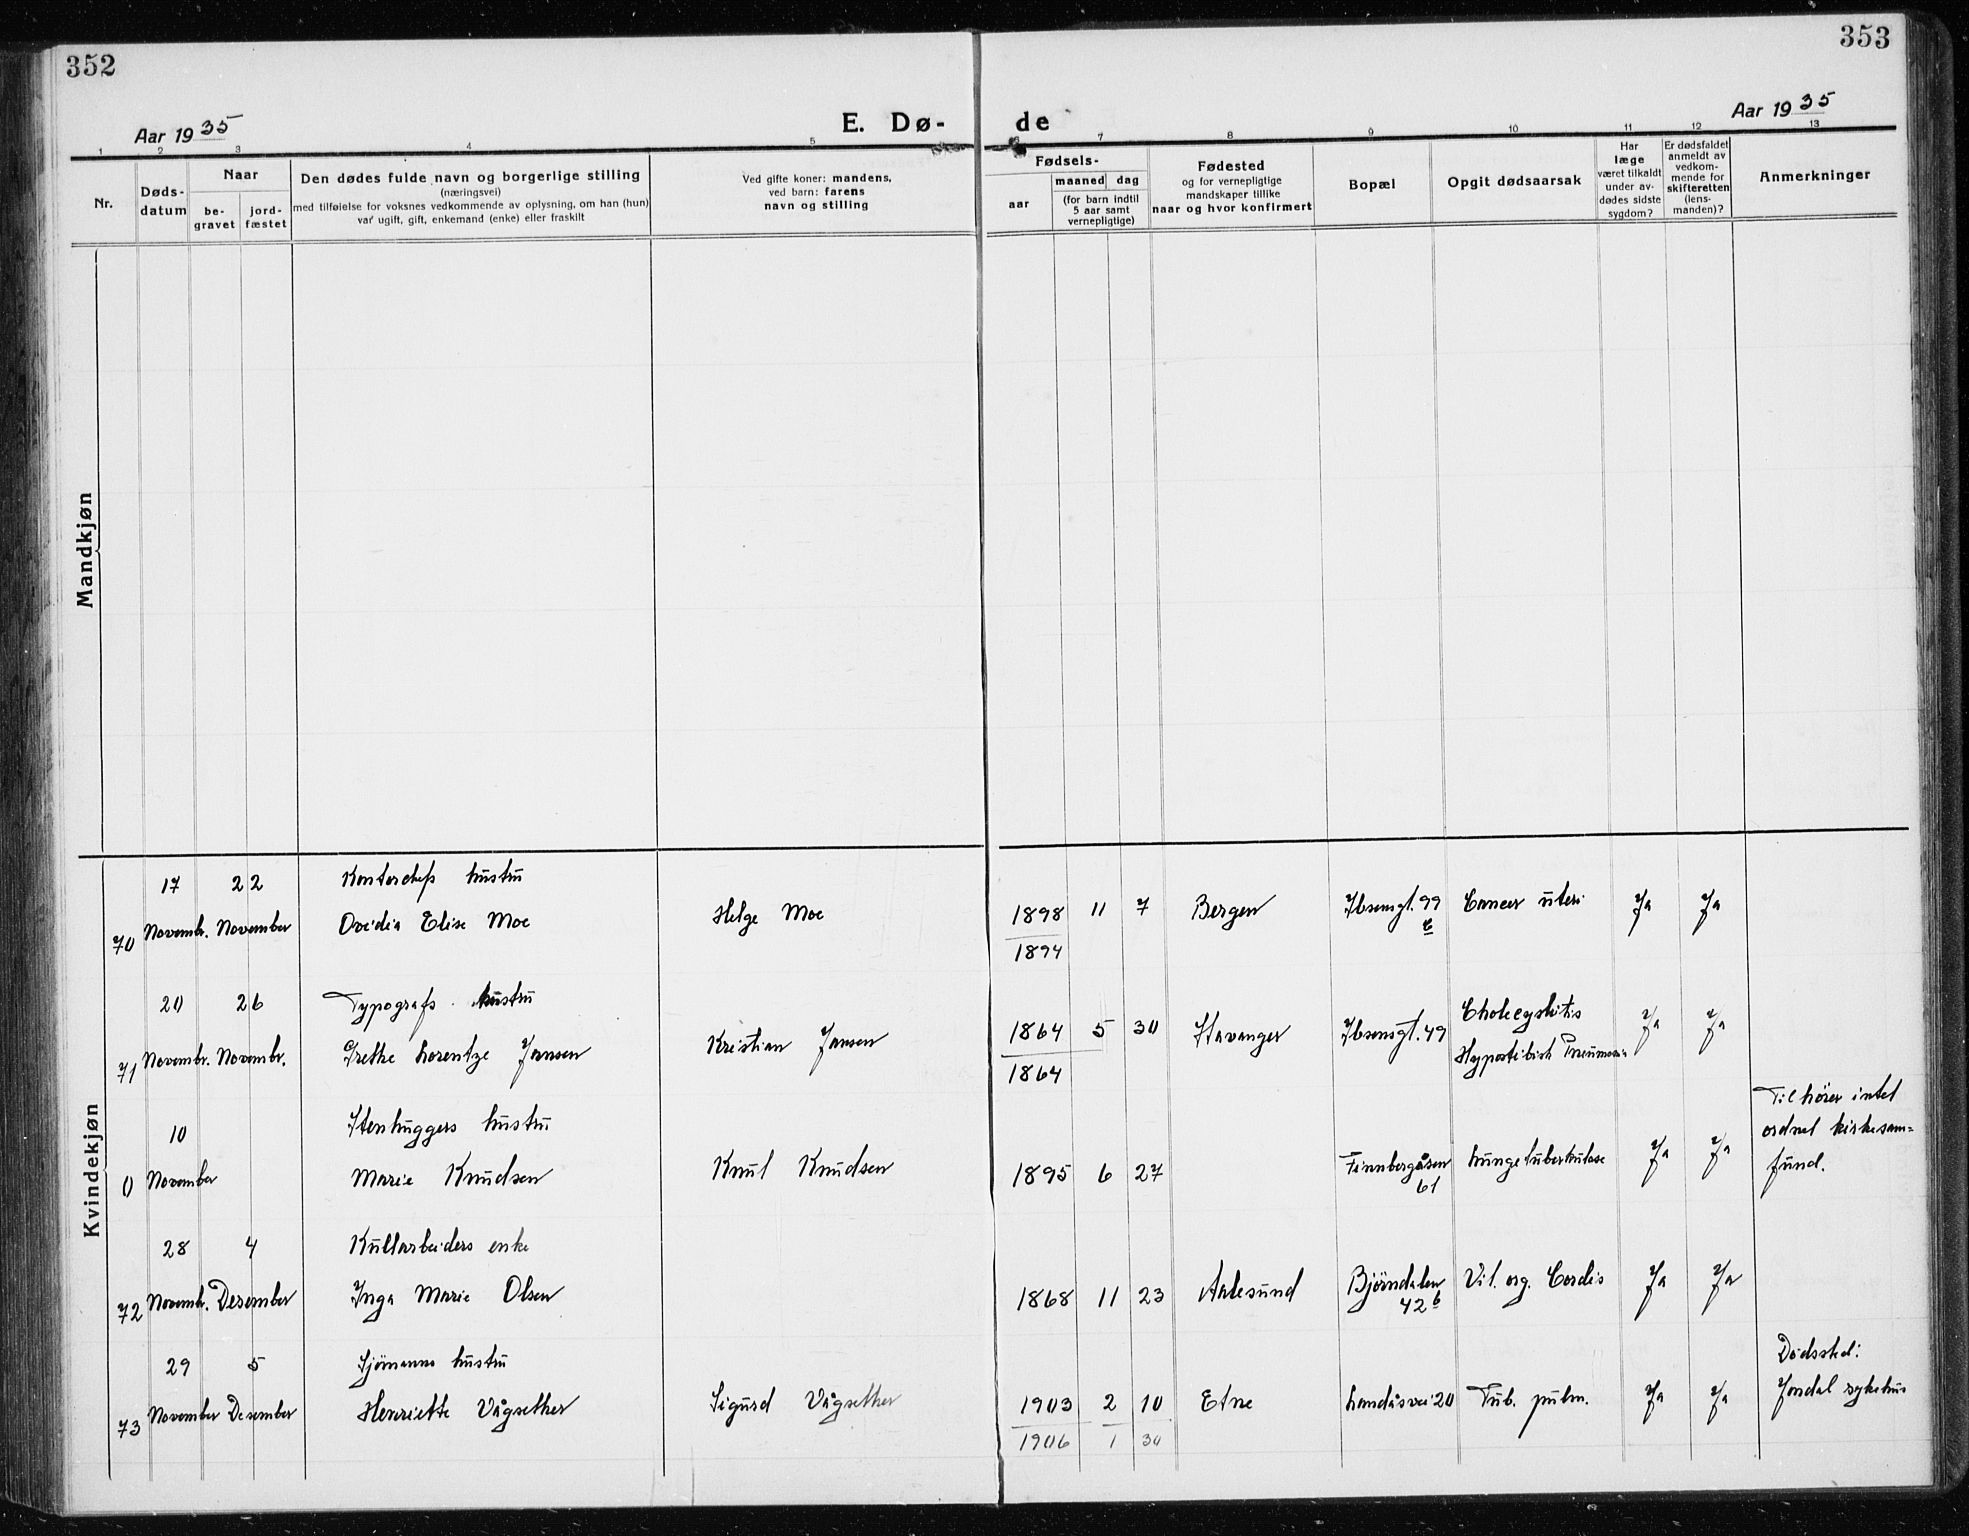 352
353
Aar 1935
E. Dø-
de
Aar 1935
1 2 3 4 5 6 7 8 9 10 11 12 13
Nr.
Døds-
datum
Naar
be-
gravet
jord-
fæstet
Den dødes fulde navn og borgerlige stilling
(næringsvei)
med tilføielse for voksnes vedkommende av oplysning, om han (hun)
var ugift, gift, enkemand (enke) eller fraskilt
Ved gifte koner: mandens,
ved barn: farens
navn og stilling
Fødsels-
aar
maaned dag
(for barn indtil
5 aar samt
vernepligtige)
Fødested
og for vernepligtige
mandskaper tillike
naar og hvor konfirmert
Bopæl
Opgit dødsaarsak
Har
læge
været tilkaldt
under av-
dødes sidste
sygdom?
Er dødsfaldet
anmeldt av
vedkom-
mende for
skifteretten
(lens-
manden)?
Anmerkninger
Mandkjøn
Kvindekjøn
17 22 Kontorchefs hustru
70 Novembr. November Ovidia Elise Moe Helge Moe 1898 11 7 Bergen Ibsensgt. 99 Cancer uteri Ja Ja
1894
20 26 Typografs hustru
71 Novembr. Novembr. Grethe Lorentze Jansen Kristian Jansen 1864 5 30 Stavanger Ibsensgt. 49 Cholecystitis Ja Ja
Hypostatisk Pneumoni
1864
10 Stenhuggers hustru
0 November Marie Knudsen Knut Knudsen 1895 6 27 Finnbergåsen Lungetuberkulose Ja Ja
61
Tilhører intet
ordnet kirkesam=
fund.
28 4 Kullarbeiders enke
72 Novembr. Desember Inga Marie Olsen 1868 11 23 Aalesund Bjørndalen Vit. org. Cordis Ja Ja
42 b
29 5 Sjømanns hustru
73 November Desember Henriette Vågsether Sigurd Vågsether 1903 2 10 Etne Landåsvei 20 Tub. pulm. Ja Ja
1906 1 30
Dødssted:
Jondal sykehus